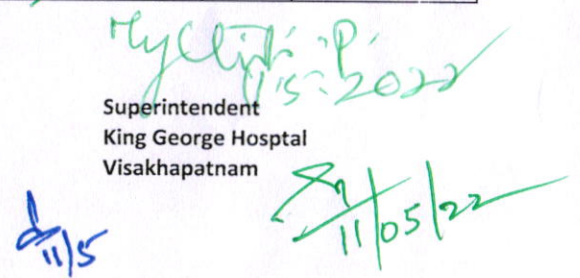 11.5.2022
Superintendent
King George Hosptal
Visakhapatnam
11/05/22
11/5